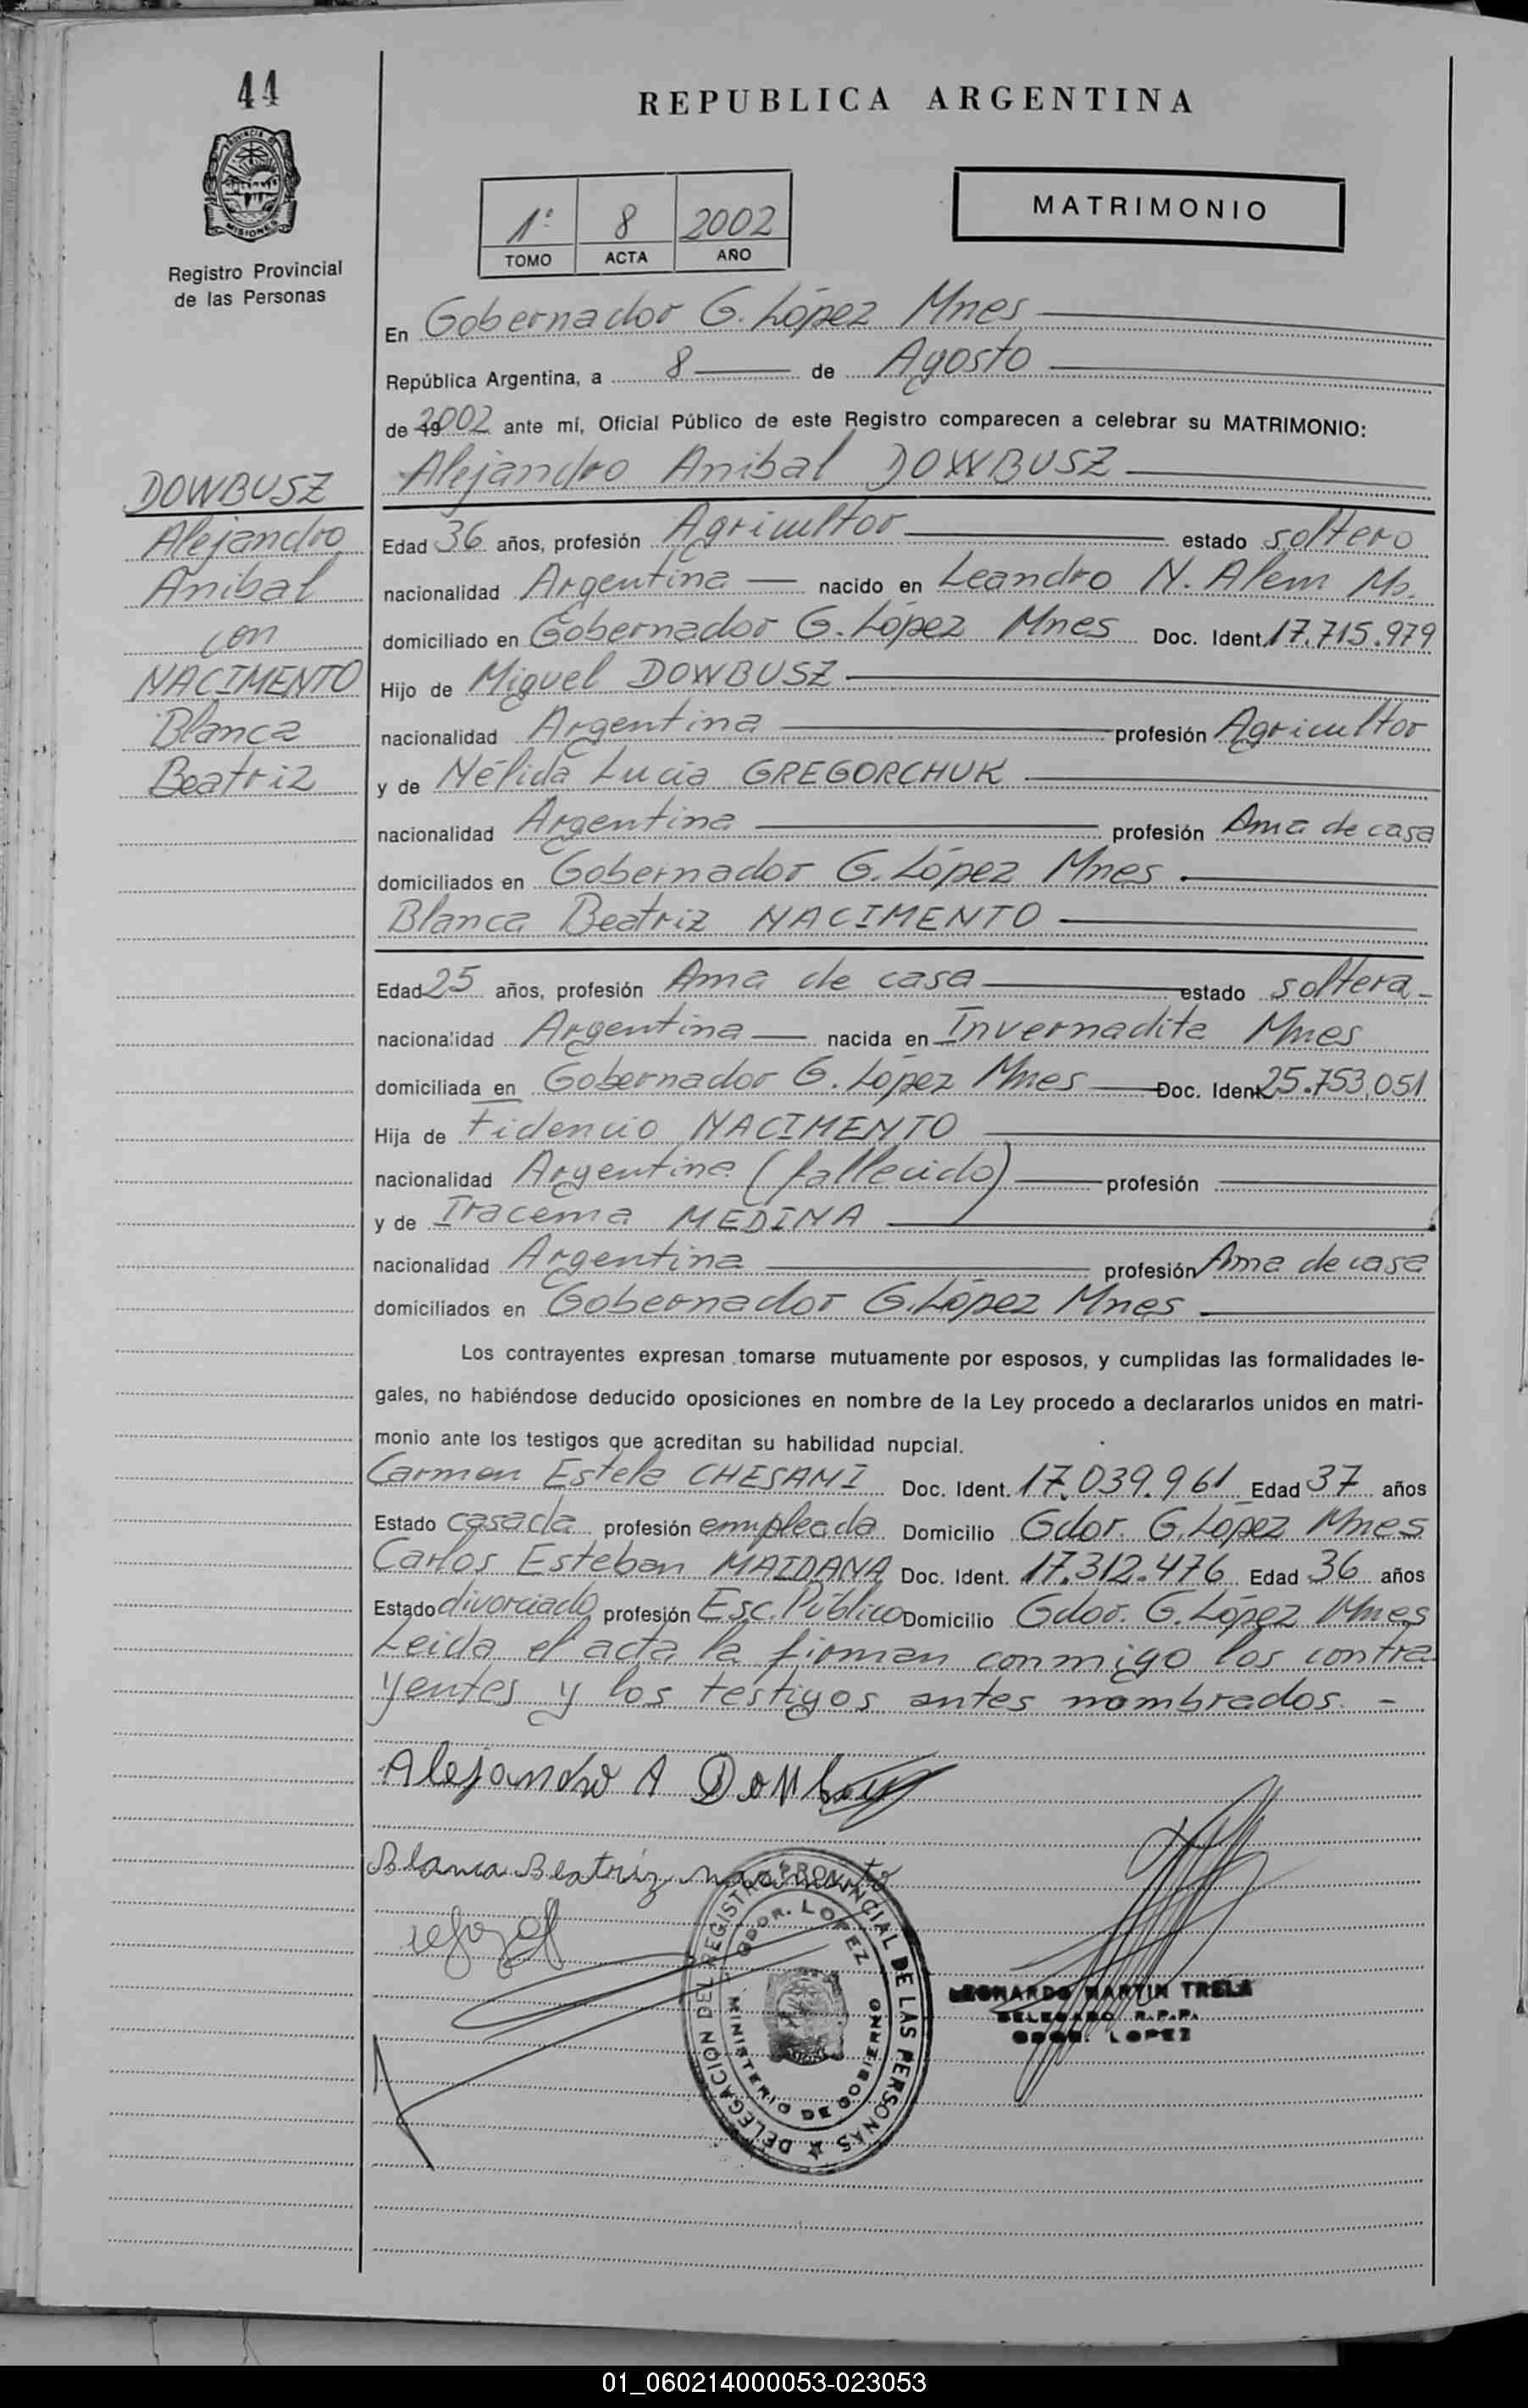 44
REPUBLICA ARGENTINA
PROVINCIA D MISIONES
Registro Provincial
de las Personas
1º 8 2002
TOMO ACTA AÑO
MATRIMONIO
En Gobernador G. López Mnes
República Argentina, a 8 de Agosto
de 2002 ante mí, Oficial Público de este Registro comparecen a celebrar su MATRIMONIO:
Alejandro Anibal DOWBUSZ
DOWBUSZ
Alejandro
Anibal
con
NACIMENTO
Blanca
Beatriz
Edad 36 años, profesión Agricultor estado soltero
nacionalidad Argentina nacido en Leandro N. Alem Ms.
domiciliado en Gobernador G. López Mnes Doc. Ident. 17.715.979
Hijo de Miguel DOWBUSZ
nacionalidad Argentina profesión Agricultor
y de Nélida Lucia GREGORCHUK
nacionalidad Argentina profesión Ama de casa
domiciliados en Gobernador G. López Mnes
Blanca Beatriz NACIMENTO
Edad 25 años, profesión Ama de casa estado soltera
nacionalidad Argentina nacida en Invernadita Mnes
domiciliada en Gobernador G. López Mnes Doc. Ident. 25.753.051
Hija de Fidencio NACIMENTO
nacionalidad Argentina (fallecido) profesión
y de Iracema MEDINA
nacionalidad Argentina profesión Ama de casa
domiciliados en Gobernador G. López Mnes
Los contrayentes expresan tomarse mutuamente por esposos, y cumplidas las formalidades le-
gales, no habiéndose deducido oposiciones en nombre de la Ley procedo a declararlos unidos en matri-
monio ante los testigos que acreditan su habilidad nupcial.
Carmen Estela CHESANI Doc. Ident. 17.039.961 Edad 37 años
Estado casada profesión empleada Domicilio Gdor. G. López Mnes
Carlos Esteban MAIDANA Doc. Ident. 17.312.476 Edad 36 años
Estado divorciado profesión Esc. Público Domicilio Gdor. G. López Mnes
Leida el acta la firman conmigo los contra
yentes y los testigos antes nombrados. -
Alejandro A
Blanca Beatriz nacimento
DELEGACION DEL REGISTRO PROVINCIAL DE LAS PERSONAS
GDOR. LOPEZ
MINISTERIO DE GOBIERNO
LEONARDO MARTIN TRELA
DELEGADO R.P.P.
GDOR. LOPEZ
01_060214000053-023053